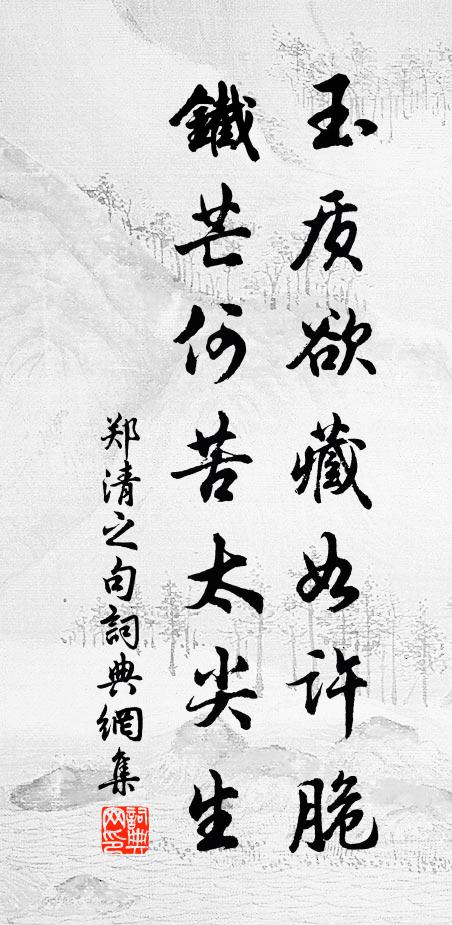 玉质欲藏如许脆
鐵芒何苦太尖生
郑清之句詞典網集
詞典網印